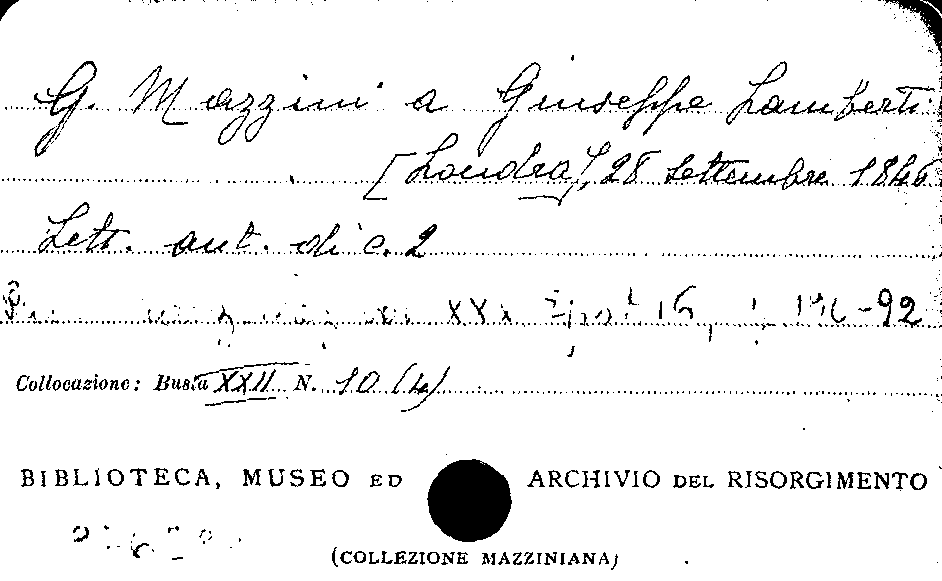 G. Mazzini a Giuseppe Lamberti
[Londra], 28 settembre 1846
Lett. aut. di c. 2
XXX 92
Collocazione: Busta XXII N. 10 (4)
BIBLIOTECA, MUSEO ED ARCHIVIO DEL RISORGIMENTO
(COLLEZIONE MAZZINIANA)